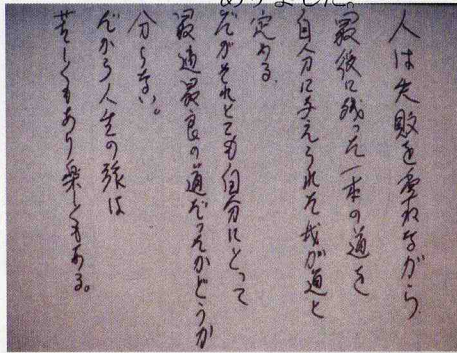 ありました。
人は失敗を重ねながら
最後に残った一本の道を
自分に与えられた我が道と
定める。
だがそれとても自分にとって
最適最良の道だったかどうか
分らない。
だから人生の旅は
苦しくもあり楽しくもある。